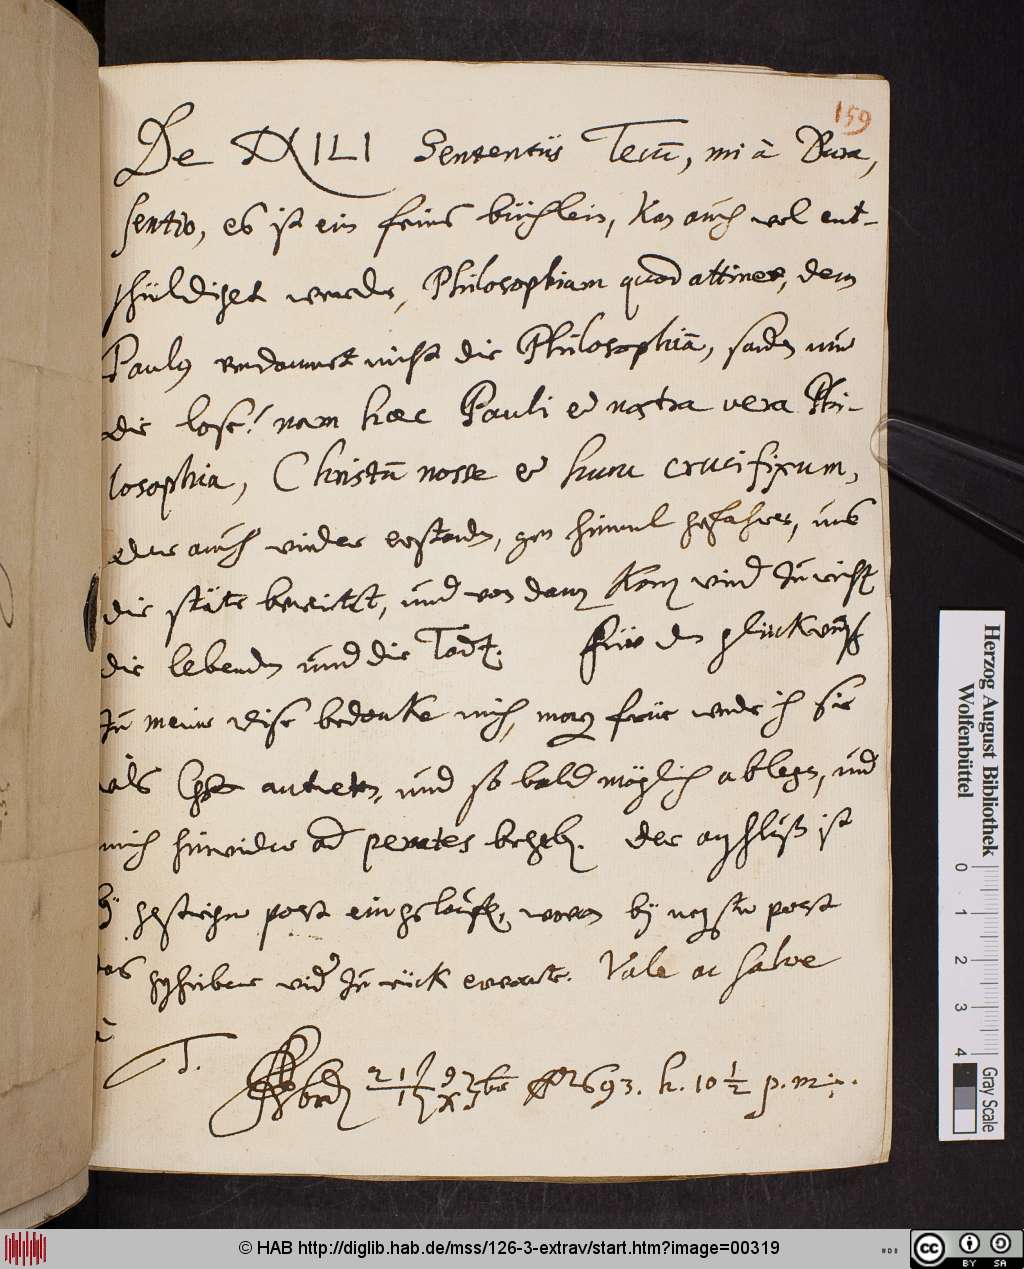 159
De XILI Sententiis Tecũ, mi à
sentio, es ist ein feines büchlein, kan auch wol ent-
schüldiget werden, Philosophiam quod attinet, den
Paulus verdammet nicht die Philosophiã, sondern nur
die lose! nam haec Pauli et nostra vera Phi-
losophia, Christũ nosse et hunc crucifixum,
der auch wieder erstanden, gen himmel gefahren, uns
die stäte bereitet, und von dannen kommen wird zu richten
die lebenden und die Todten. Für den glückwunsch
zu meiner reise bedanke mich, morgen früe werde ich sie
als antreten, und so bald möglich ablegen, und
mich hinwider ad penates begeben. der anschluß ist
bey gestriger post eingelauffen, wovon bey negster post
das schreiben wider zurück erwarte. Vale ac salve
à
T.
21/11 9/X br 1693. h. 10 1/2 p. m.
Herzog August Bibliothek
Wolfenbüttel
0 1 2 3 4
Gray Scale
© HAB http://diglib.hab.de/mss/126-3-extrav/start.htm?image=00319
cc BY SA